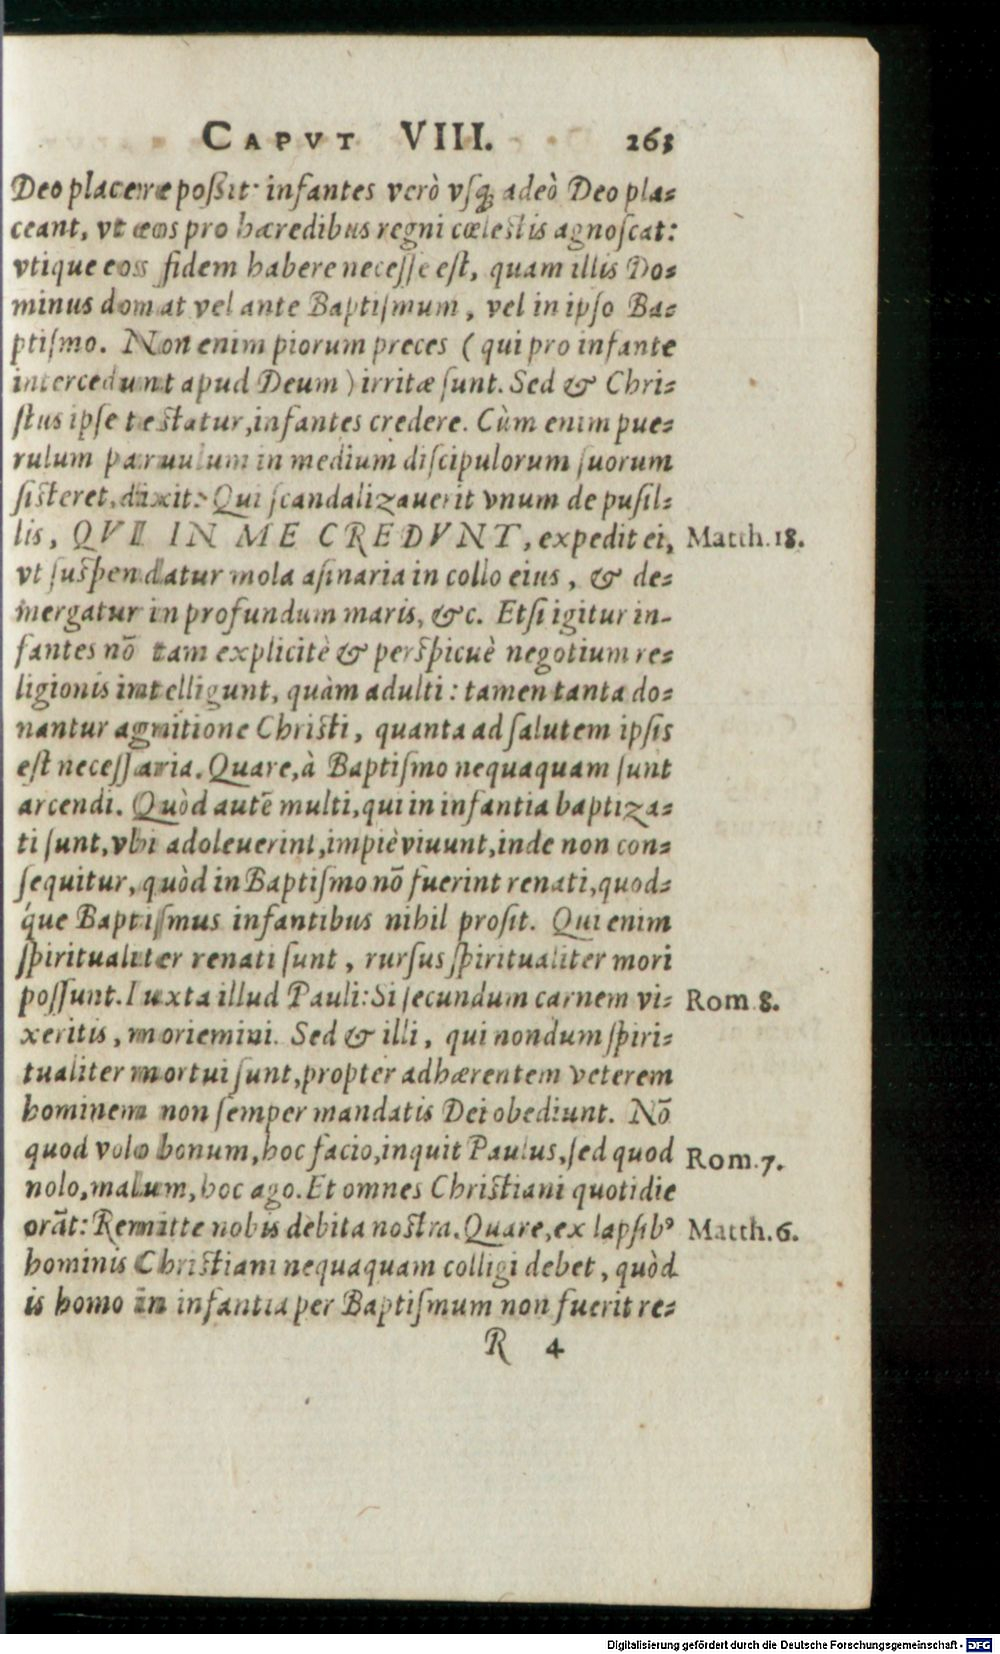 CAPVT VIII. 263
Deo placere poßit: infantes verò vsq́; adeò Deo pla-
ceant, vt eos pro hæredibus regni cœlestis agnoscat:
vtique eos fidem habere necesse est, quam illis Do-
minus donat vel ante Baptismum, vel in ipso Ba-
ptismo. Non enim piorum preces (qui pro infante
intercedunt apud Deum) irritæ sunt. Sed & Chri-
stus ipse testatur, infantes credere. Cùm enim pue-
rulum paruulum in medium discipulorum suorum
sisteret, dixit: Qui scandalizauerit vnum de pusil-
lis, QVI IN ME CREDVNT, expedit ei, Matth. 18.
vt suspendatur mola asinaria in collo eius, & de-
mergatur in profundum maris, &c. Etsi igitur in-
fantes nō tam explicitè & perspicuè negotium re-
ligionis intelligunt, quàm adulti: tamen tanta do-
nantur agnitione Christi, quanta ad salutem ipsis
est necessaria. Quare, à Baptismo nequaquam sunt
arcendi. Quòd autē multi, qui in infantia baptiza-
ti sunt, vbi adoleuerint, impiè viuunt, inde non con-
sequitur, quòd in Baptismo nō fuerint renati, quod-
q́ue Baptismus infantibus nihil prosit. Qui enim
spiritualiter renati sunt, rursus spiritualiter mori
possunt. Iuxta illud Pauli: Si secundum carnem vi- Rom. 8.
xeritis, moriemini. Sed & illi, qui nondum spiri-
tualiter mortui sunt, propter adhærentem veterem
hominem non semper mandatis Dei obediunt. Nō
quod volo bonum, hoc facio, inquit Paulus, sed quod Rom. 7.
nolo, malum, hoc ago. Et omnes Christiani quotidie
orāt: Remitte nobis debita nostra. Quare, ex lapsibꝰ Matth. 6.
hominis Christiani nequaquam colligi debet, quòd
is homo in infantia per Baptismum non fuerit re-
R 4
Digitalisierung gefördert durch die Deutsche Forschungsgemeinschaft - DFG